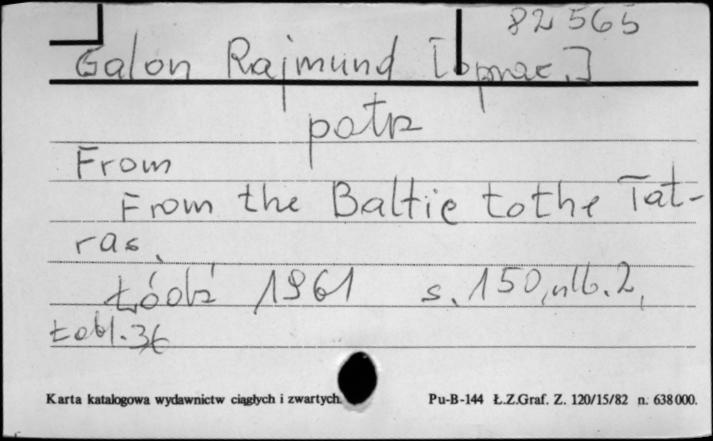 82565
Galon Rajmund [oprac.]
patrz
From
From the Baltic to the Tat-
ras.
Łódź 1961 s. 150, nlb. 2,
tabl. 36
Karta katalogowa wydawnictw ciągłych i zwartych. Pu-B-144 Ł.Z.Graf. Z. 120/15/82 n. 638000.